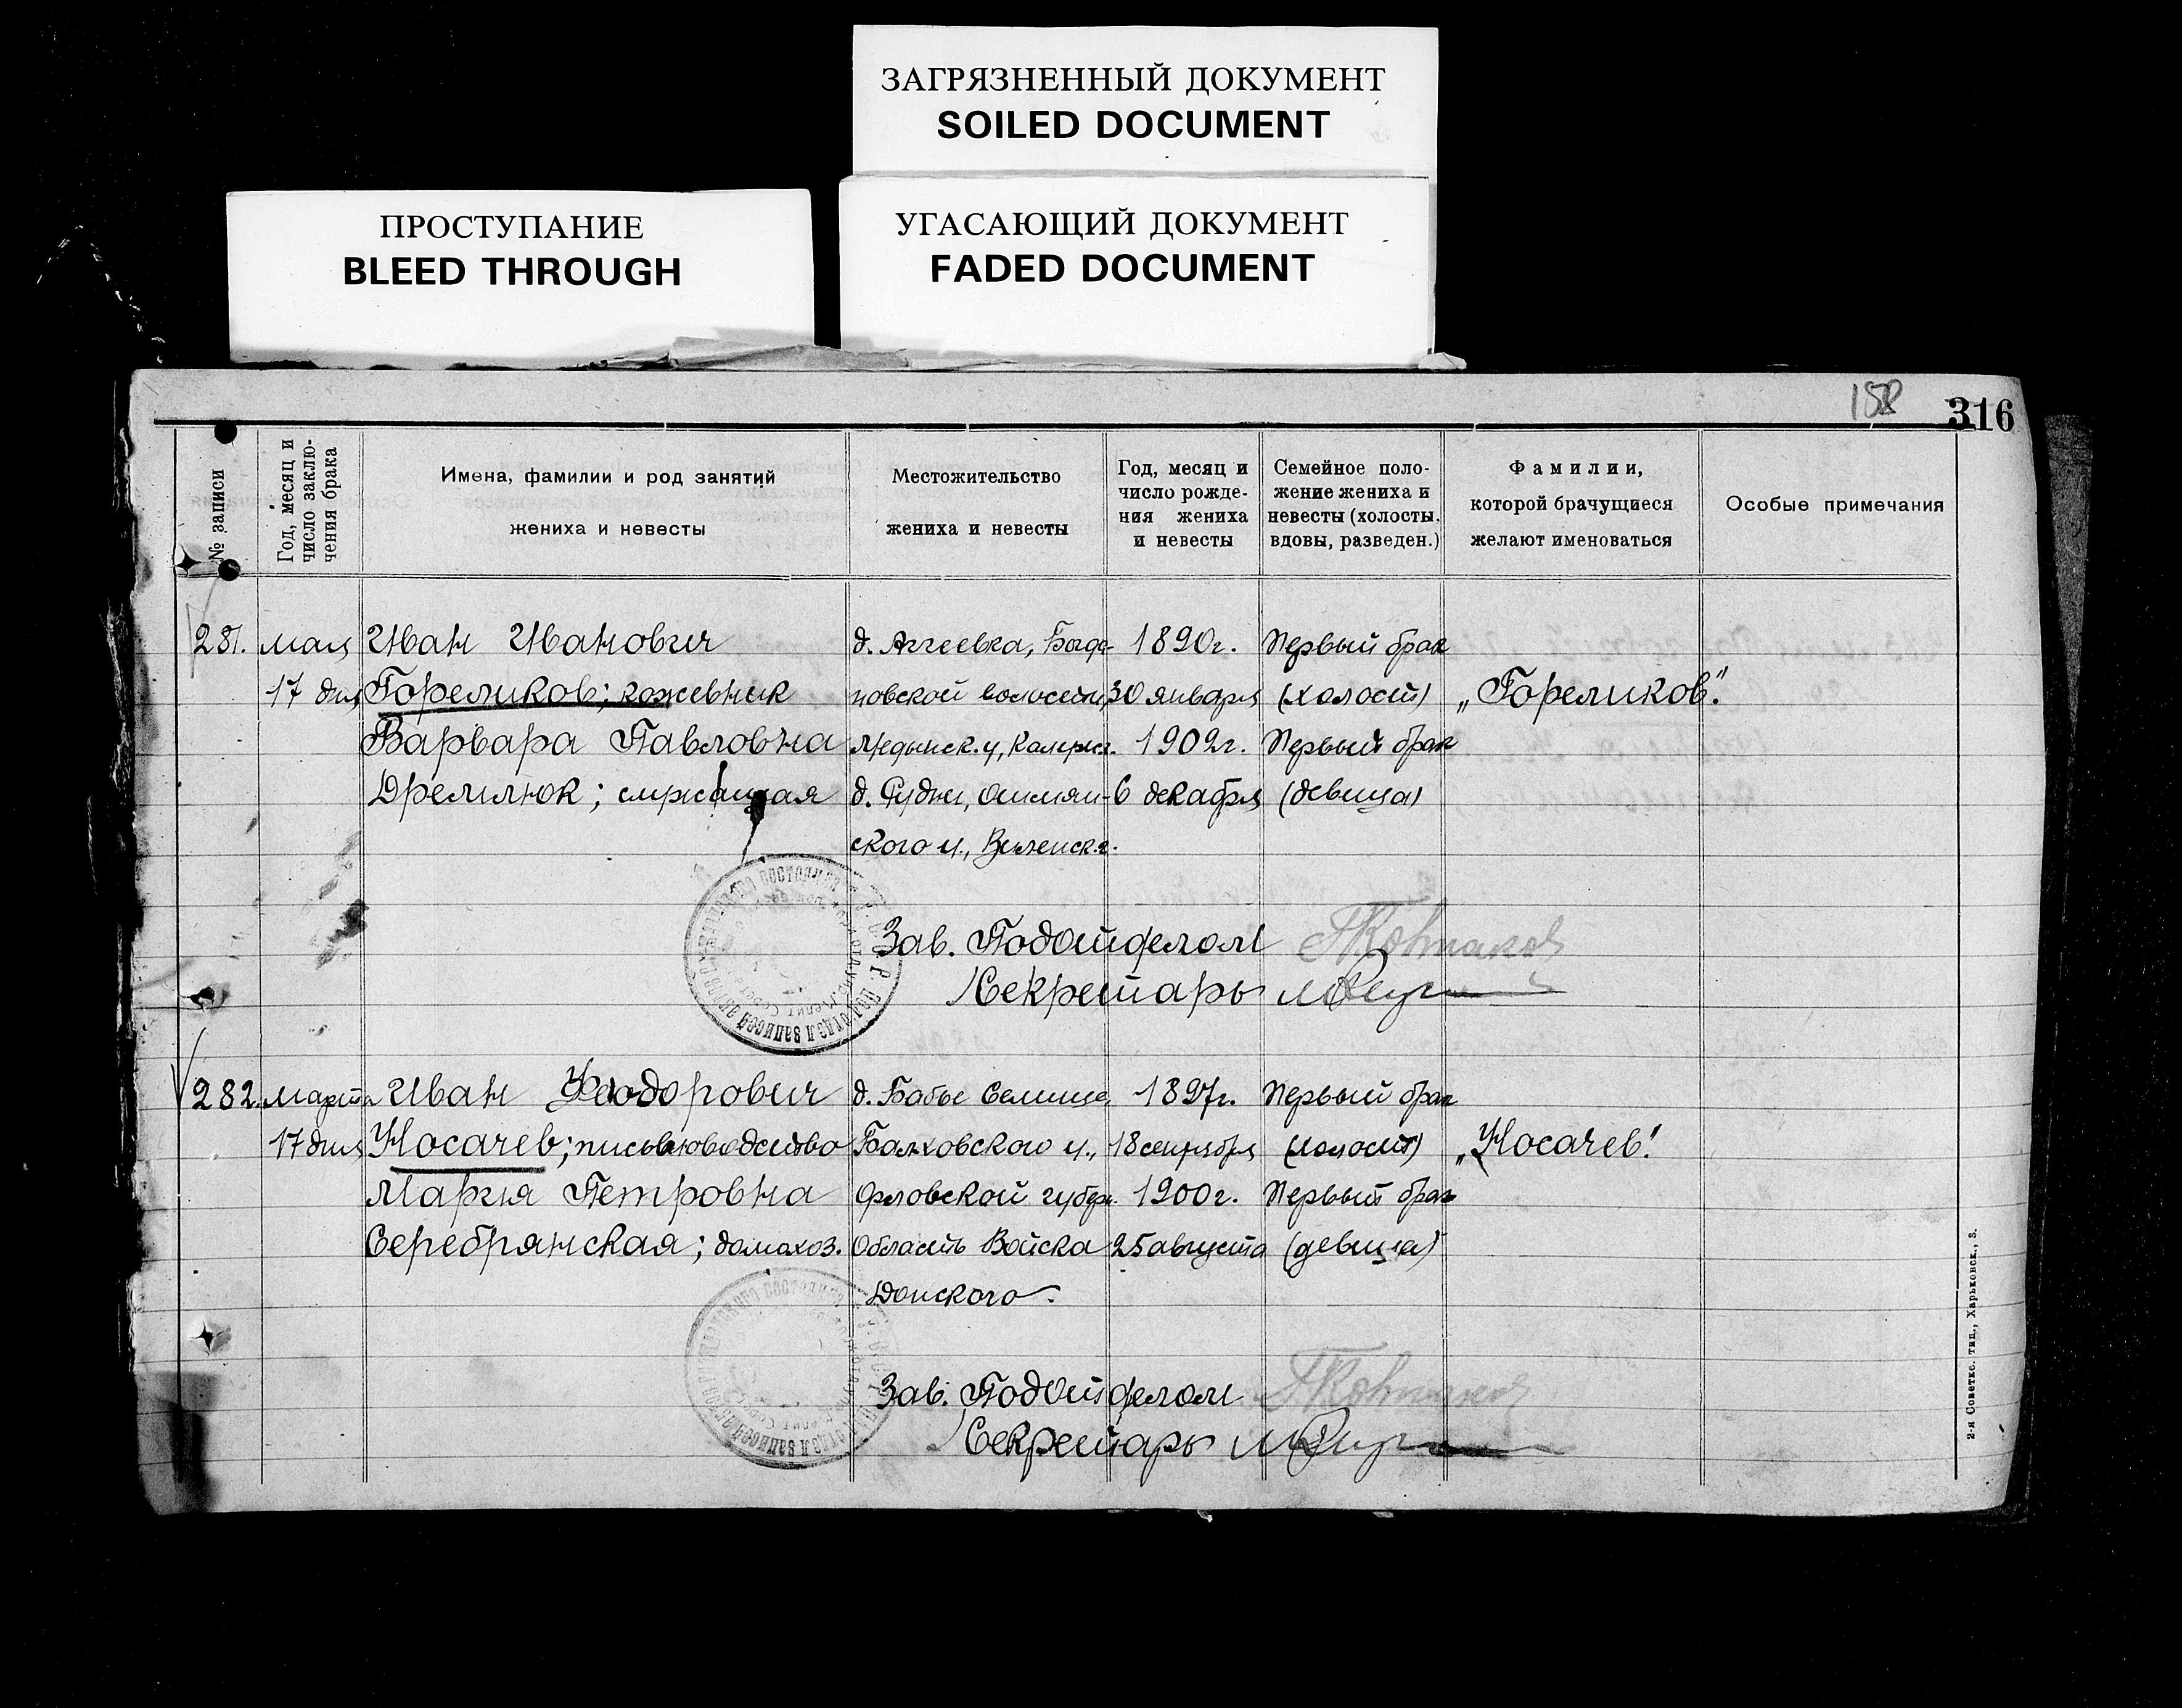 ЗАГРЯЗНЕННЫЙ ДОКУМЕНТ
SOILED DOCUMENT
ПРОСТУПАНИЕ
BLEED THROUGH
УГАСАЮЩИЙ ДОКУМЕНТ
FADED DOCUMENT
158
316
№ записи
Год, месяц и
число заклю-
чения брака
Имена, фамилии и род занятий
жениха и невесты
Местожительство
жениха и невесты
Год, месяц и
число рожде-
ния жениха
и невесты
Семейное поло-
жение жениха и
невесты (холосты,
вдовы, разведен.)
Фамилии,
которой брачущиеся
желают именоваться
Особые примечания
281.
мая
17 дня
Иван Иванович
Гореликов; кожевник
Варвара Павловна
Дремлюк; служащая
д. Аггеевка, Богда-
новской волости,
Медынск. у,
д. Рудни, Ошмян-
ского у., Виленск. г.
1890г.
30 января
1902г.
6 декабря
Первый брак
(холост)
Первый брак
(девица)
„Гореликов".
Зав. Подотделом
Секретарь
282.
марта
17 дня
Иван Феодорович
Носачев; письмоводство
Мария Петровна
Серебрянская; домахоз.
д. Бабье Селище
Балховского у.,
Орловской губер.
Область Войска
Донского.
1897г.
18 сентября
1900г.
25 августа
Первый брак
(холост)
Первый брак
(девица)
„Носачев".
Зав. Подотделом
Секретарь
2-я Советск. тип., Харьковск., 3.